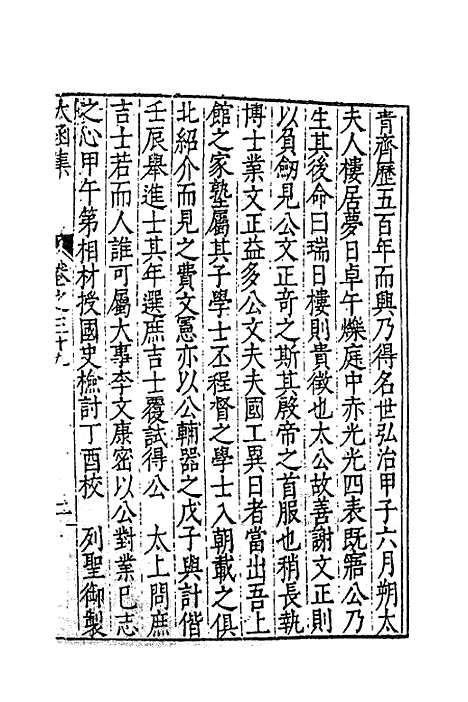 青齊歷五百年而興乃得名世弘治甲子六月朔太
夫人樓居夢日卓午爍庭中赤光光四表既寤公乃
生其後命曰瑞日樓則貴徵也太公故善謝文正則
以負劒見公文正奇之斯其殷帝之首服也稍長執
博士業文正益多公文夫夫國工異日者當出吾上
館之家塾屬其子學士丕程督之學士入朝載之俱
北紹介而見之費文憲亦以公輔器之戊子與計偕
壬辰舉進士其年選庶吉士覆試得公 太上問庶
吉士若而人誰可屬大事李文康密以公對業已志
之心甲午第相材授國史檢討丁酉校 列聖御製
太函集 卷之三十九 二